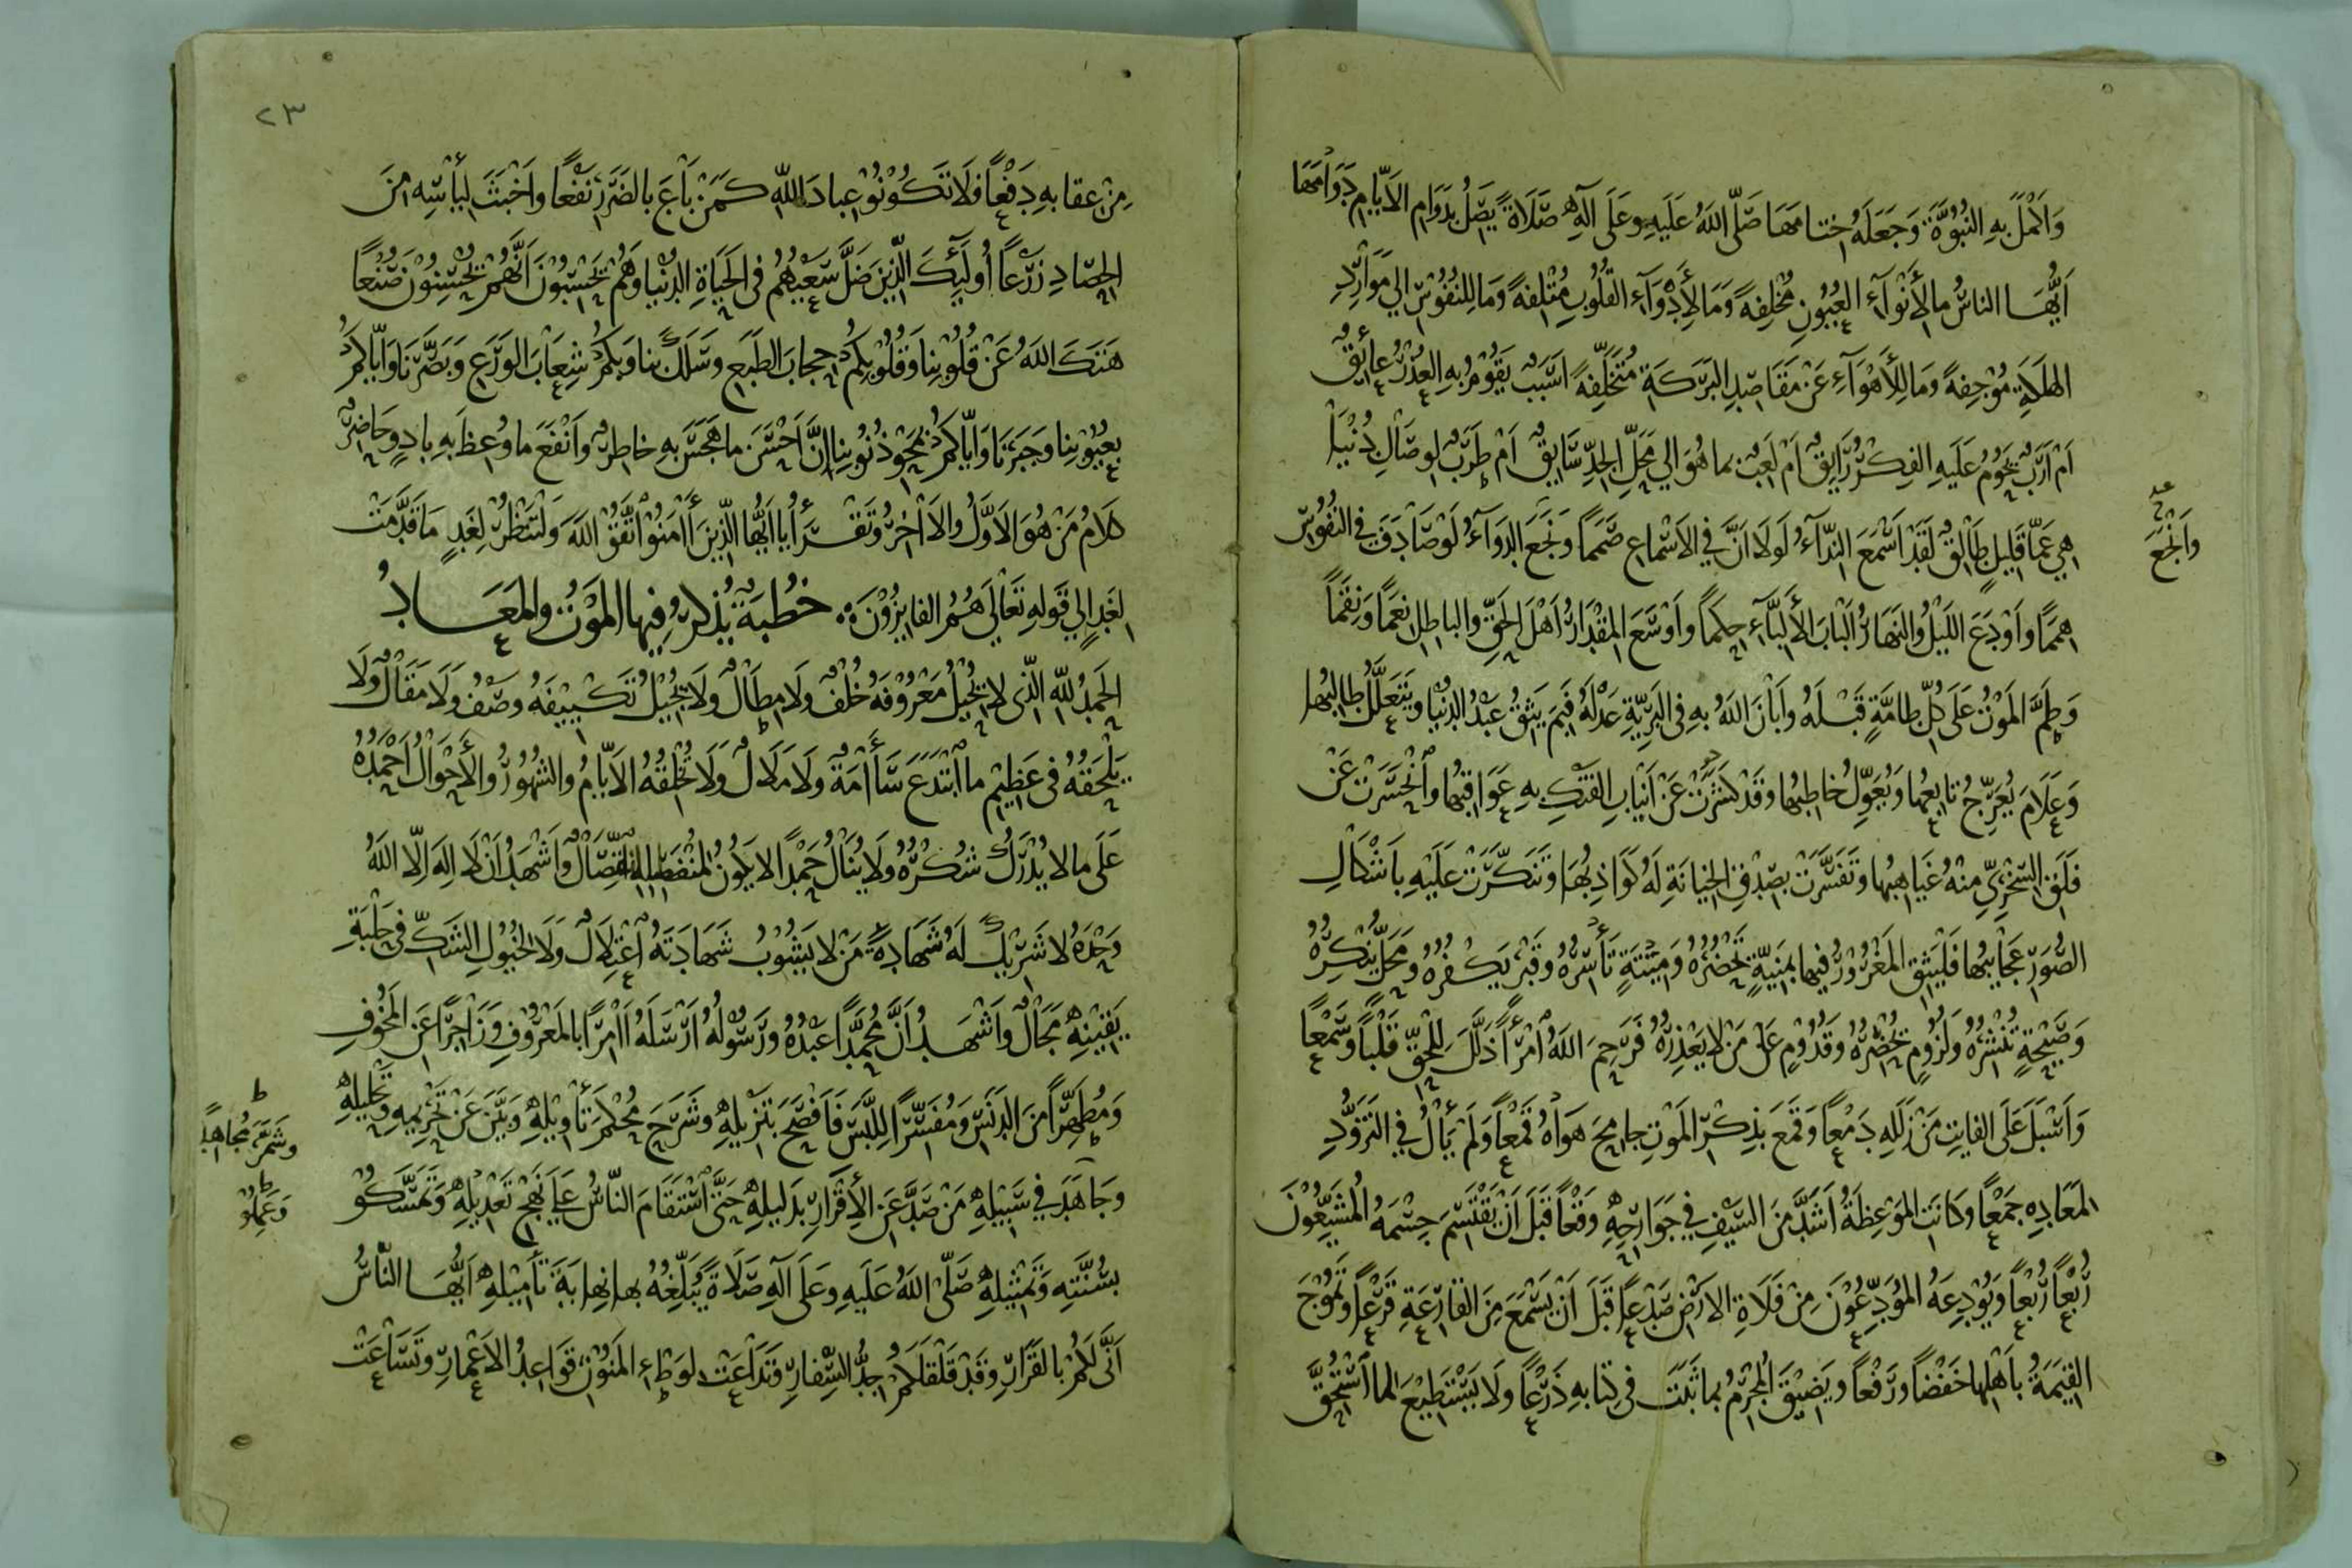 وَاَكْمَلَ بِهِ النُّبُوَّةَ وَجَعَلَهُ خِتامَهَا صَلَّى اللهُ عَلَيهِ وعَلَى آلِهِ صَلَاةً يَصِلُ بِدَوَامِ الاَيّامِ دَوَامَهَا
اَيُّهَا الناسُ ما لِأَنْوَآءِ العُيُونِ مُخْلِفةً وَمَا لِأَدْوَآءِ القُلُوبِ مُتْلِفةً وَمَا لِلنُفُوْسِ الي مَوَارِدِ
الهَلَكَةِ مُوْجِفةً وَمَا لِلأَهْوَآءِ عَنْ مَقَاصِدِ البَرَكَةِ مُتَخَلِّفةً اَسَبَبٌ يَقُوْمُ بِهِ العُذْرُ عَائِقٌ
اَمْ اَرَبٌ يَحُوْمُ عَلَيهِ الفِكْرُ رَايِقٌ اَمْ لَعِبٌ بما هُوَ الي مَحَلِّ الجِدِّ سَايِقٌ اَمْ طَرَبٌ لِوِصَالِ دُنْيا
هِي عَمّا قَلِيلٍ طَالِقٌ لَقَدْ اَسْمَعَ النِّدَآءُ لَولَا اَنَّ فِي الاَسْماعِ صَمَماً وَنَجَعَ الدَوَآءُ لَوْ صَادَفَ فِي النُفُوْسِ
هِمَمًا وَاَوْدَعَ اللَيْلُ والنَهَارُ اَلْبَابَ الأَلِبَّآءِ حِكَماً وَاَوْسَعَ المِقْدَارُ اَهْلَ الحَقِّ والباطِلِ نِعَمًا وَنِقَماً
وَطَمَّ المَوْتُ عَلَى كُلِّ طامَّةٍ قَبْلَهُ وَاَبَانَ اللهُ بِهِ فِي البَرِيَّةِ عَدْلَهُ فَبِمَ يَثِقُ عَبْدُ الدُنْيا وَيَتَعَلَّلُ طالِبُها
وَعَلَامَ يُعَرِّجُ تابِعُها وَيُعَوِّلُ خاطِبُها وَقَدْ كَشَرَتْ عَنْ اَنْيَابِ الفَتْكِ بِهِ عَوَاقِبُها وَانْحَسَرَتْ عَنْ
فَلَقِ السُّخْرِيِّ مِنْهُ غَيَاهِبُها وَتَفَسَّرَتْ بِصِدْقِ الخِيانَةِ لَهُ كَوَاذِبُها وَتَنَكَّرَتْ عَلَيْهِ بِاَشْكَالِ
الصُّوَرِ عَجَايِبُها فَلْيَثِقِ المَغْرُوْرُ فِيها بِمَنِيَّةٍ تَحْضُرُهُ وَمِيْتَةٍ تَأْسِرُهُ وَقَبْرٍ يَكْفُرُهُ وَمَحَلٍّ يُنْكِرُهُ
وَصَيْحَةٍ تُنْشِرُهُ وَلُزُوْمٍ تُحْضِرُهُ وَقُدُوْمٍ عَلَى مَنْ لَا يَعْذِرُهُ فَرَحِمَ اللهُ امْرَأً ذَلَّلَ لِلْحَقِّ قَلْباً وَسَمْعاً
وَاَسْبَلَ عَلَى الفايِتِ مِنْ زَلَلِهِ دَمْعاً وَقَمَعَ بِذِكْرِ المَوْتِ جامِحَ هَوَاهُ قَمْعاً وَلَمْ يَأْلُ فِي التَزَوُّدِ
لِمَعَادِهِ جَمْعاً وَكَانَتِ المَوْعِظَةُ اَشَدَّ مِنَ السَيْفِ فِي جَوَارِحِهِ وَقْعاً قَبْلَ اَنْ يَقْتَسِمَ جِسْمَهُ المُشَيِّعُوْنَ
رُبْعاً رُبْعاً وَيُوْدِعَهُ المُوَدِّعُوْنَ مِنْ فَلَاةِ الاَرْضِ صَدْعاً قَبْلَ اَنْ يَسْمَعَ مِنَ القارِعَةِ قَرْعاً وَتَمُوْجَ
القِيٰمَةُ بِاَهْلِها خَفْضاً وَرَفْعاً وَيَضِيْقَ المُجْرِمُ بِما ثَبَتَ فِي كِتابِهِ ذَرْعاً وَلَا يَسْتَطِيْعَ لِما اسْتَحَقَّ
وَاَنْجَعَ
٢٣
مِنْ عِقابِهِ دَفْعاً فَلَا تَكُوْنُوْ عِبادَ اللهِ كَمَنْ بَاعَ بالضَرَرِ نَفْعًا وَاَخْبَثَ لِيَأْسِهِ مِنَ
الحَصَادِ زَرْعاً أُولَئِكَ الَّذِينَ ضَلَّ سَعْيُهُمْ فِي الحَيَاةِ الدُنْيا وَهُمْ يَحْسَبُوْنَ اَنَّهُمْ يُحْسِنُوْنَ صُنْعًا
هَتَكَ اللهُ عَنْ قُلُوْبِنا وَقُلُوْبِكُمْ حِجابَ الطَبَعِ وَسَلَكَ بِنا وَبِكُمْ شِعَابَ الوَرَعِ وَبَصَّرَنَا وَاِيَّاكُمْ
بِعُيُوْبِنا وَجَبَرَنَا وَاِيَّاكُمْ بِمَحْوِ ذُنُوبِنا اِنَّ اَحْسَنَ ما هَجَسَ بِهِ خاطِرٌ وَاَنْفَعَ ما وُعِظَ بِهِ بادٍ وَحَاضِرٌ
كَلَامُ مَنْ هُوَ الاَوَّلُ والاٰخِرُ وَتَقْرَأُ يا اَيُّها الَّذِينَ آمَنُوْا اتَّقُوْ اللهَ وَلْتَنْظُرْ نَفْسٌ ما قَدَّمَتْ
لِغَدٍ اِلي قَوْلِهِ تَعَالَى هُمُ الفايِزُوْنَ خُطْبَةٌ يُذْكَرُ فِيها المَوْتُ والمَعَادُ
الحَمْدُ للهِ الَّذِي لَا يُحِيْلُ مَعْرُوْفَهُ خُلْفٌ وَلَا مِطَالٌ وَلَا يُحِيْلُ تَكْيِيْفَهُ وَصْفٌ وَلَا مَقَالٌ وَلَا
يَلْحَقُهُ فِي عَظِيْمِ ما ابْتَدَعَ سَأٰمَةٌ وَلَا مَلَالٌ وَلَا تُخْلِقُهُ الاَيّامُ والشُهُوْرُ والأَحْوَالُ اَحْمَدُهُ
عَلَى ما لَا يُدْرَكُ شُكْرُهُ وَلَا يُنَالُ حَمْداً لَا يَكُونُ وَاَشْهَدُ اَنْ لَا اِلَهَ اِلّا اللهُ
وَحْدَهُ لَا شَرِيْكَ لَهُ شَهَادَةَ مَنْ لَا يَشُوْبُ شَهَادَتَهُ اعْتِلَالٌ وَلَا لِخُيُولِ الشَكِّ فِي حَلْبَةِ
يَقِيْنِهِ مَجَالٌ وَاَشْهَدُ اَنَّ مُحَمَّداً عَبْدُهُ وَرَسُوْلُهُ اَرْسَلَهُ آمِرًا بالمَعْرُوْفِ وَزَاجِرًا عَنِ المَخُوْفِ
وَمُطَهِّراً مِنَ الدَنَسِ وَمُفَسِّرًا لِلَّبَسِ فَاَفْصَحَ بِتَنْزِيلِهِ وَشَرَحَ مُحْكَمَ تَأْوِيْلِهِ وَبَيَّنَ عَنْ تَحْرِيمِهِ وَتَحْلِيلِهِ
وَجَاهَدَ فِي سَبِيْلِهِ مَنْ صَدَّ عَنِ الأِقْرَارِ بِدَلِيلِهِ حَتَّى اسْتَقَامَ النّاسُ عَلَي نَهْجِ تَعْدِيْلِهِ وَتَمَسَّكُوْ
بِسُنَّتِهِ وَتَمْثِيلِهِ صَلَّى اللهُ عَلَيهِ وعَلَى آلِهِ صَلَاةً يُبَلِّغُهُ بها نِهايَةَ تَأْمِيْلِهِ اَيُّهَا النَّاسُ
اَنَّى لَكُمْ بالقَرَارِ وَقَدْ قَلْقَلَكُمْ جِدُّ السِّفَارِ وَتَدَاعَتْ لِوَطْءِ المَنُوْنِ قَوَاعِدُ الاَعْمَارِ وَتَسَاعَتْ
وَشَمَّرَ مُجاهِداً
وَعَمِلُوْ